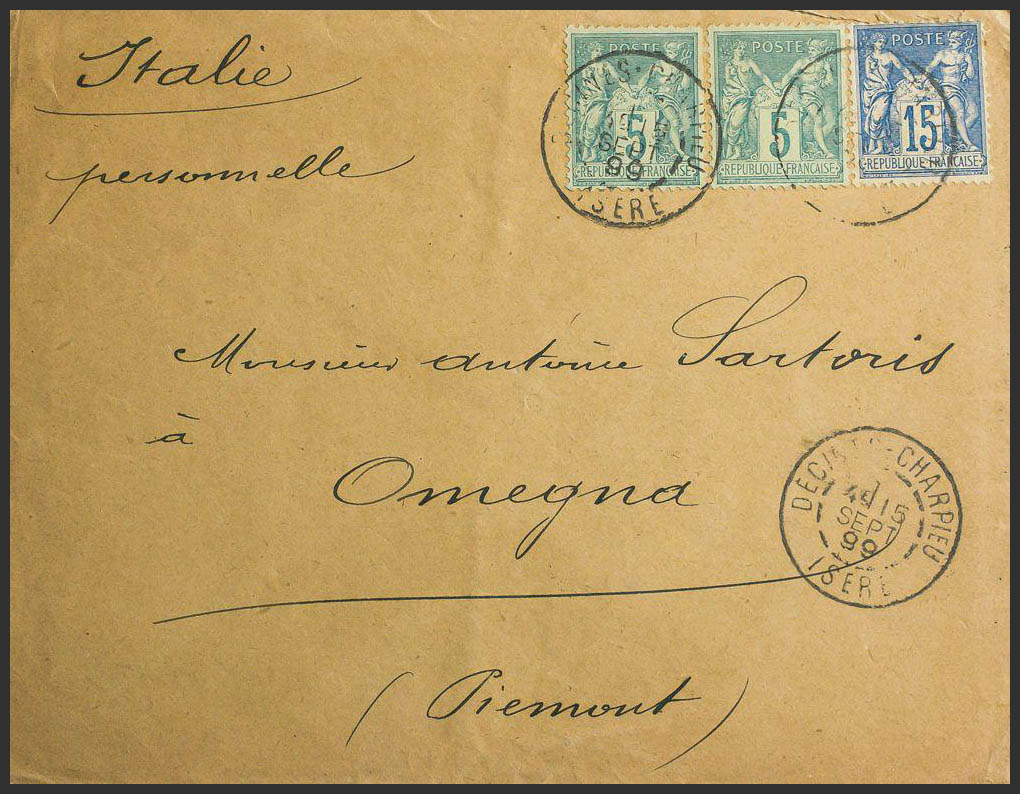 Italie
personnelle
POSTE
5
REPUBLIQUE FRANÇAISE
POSTE
5
REPUBLIQUE FRANÇAISE
POSTE
15
REPUBLIQUE FRANÇAISE
SEPT
99
ISERE
Monsieur Antoine Sartoris
à
Omegna
CHARPIEU
15
SEPT
99
ISERE
(Piemont)